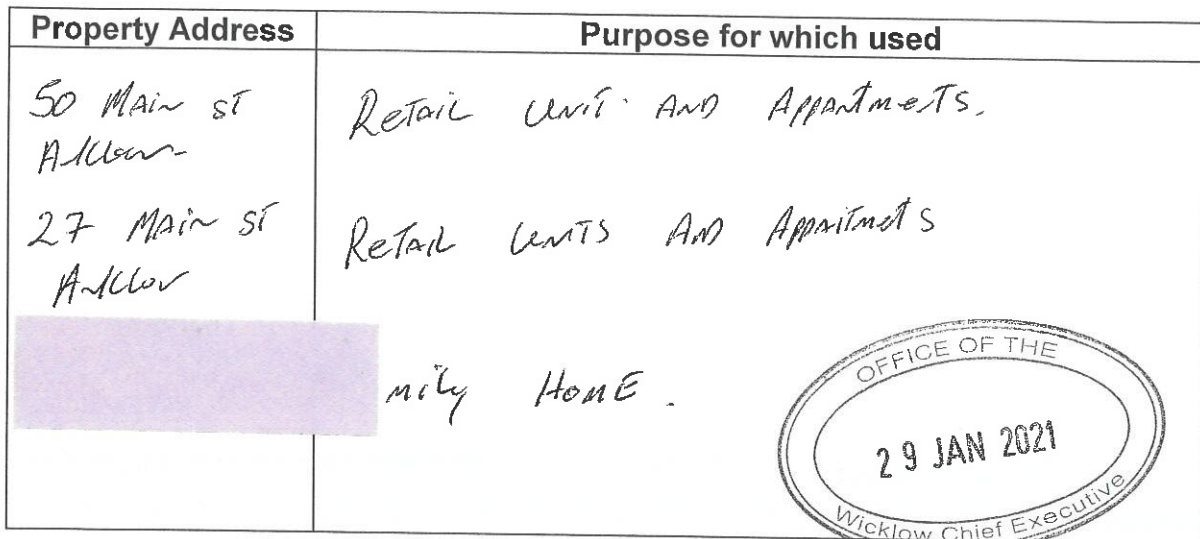 Property Address Purpose for which used
50 Main St Retail Unit And Appartments.
Arklow
27 Main St Retail Units And Appartments
Arklow
mily Home.
OFFICE OF THE
29 JAN 2021
Wicklow Chief Executive